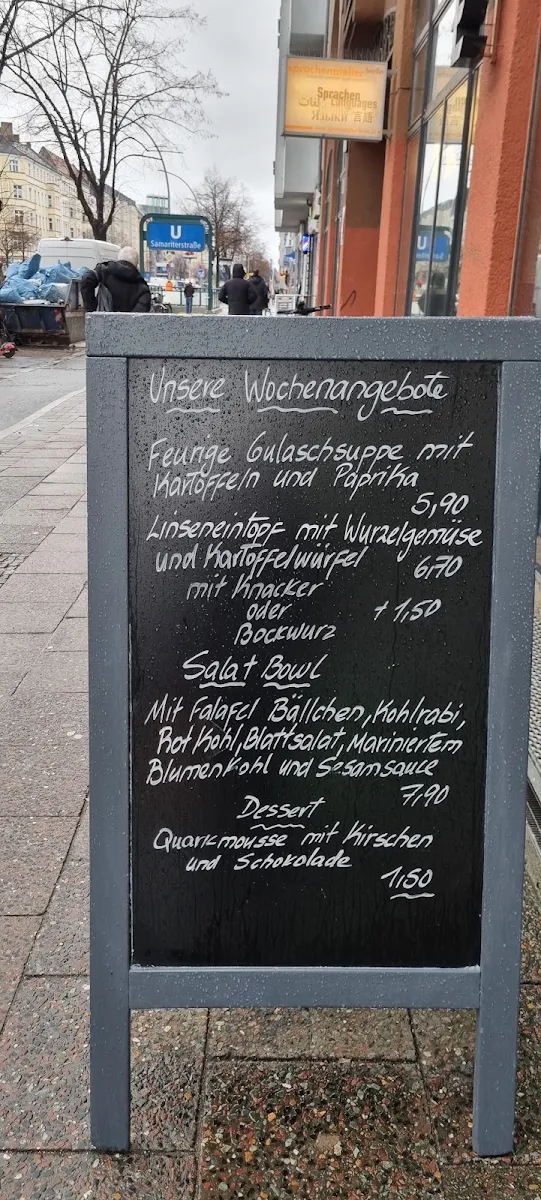 sprachenatelier berlin
Sprachen
لغات Languages
Языки 言語
U
Samariterstraße
U
Unsere Wochenangebote
Feurige Gulaschsuppe mit
Kartoffeln und Paprika
5,90
Linseneintopf mit Wurzelgemüse
und Kartoffelwürfel 6,70
mit Knacker
oder + 1,50
Bockwurz
Salat Bowl
Mit Falafel Bällchen, Kohlrabi,
Rot Kohl, Blattsalat, Mariniertem
Blumenkohl und Sesamsauce
7,90
Dessert
Quarkmousse mit Kirschen
und Schokolade
1,50